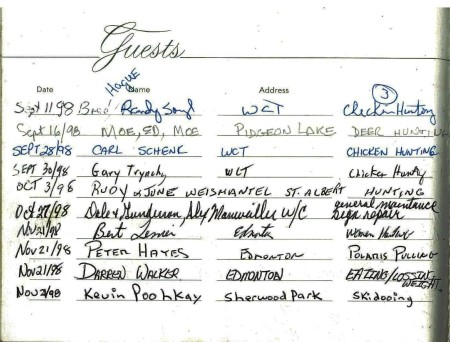 Guests
Date Name Address
Hogue 3
Sept 11 98 Brad Randy W C T Chicken Hunting
Sept 16/98 MOE, ED, MOE PIDGEON LAKE DEER HUNTING
SEPT 28/98 CARL SCHENK WCT CHICKEN HUNTING
SEPT 30/98 Gary WCT Chicken Hunting
OCT 3/98 RUDY & JUNE WEISMANTEL ST. ALBERT HUNTING
general maintance
Oct 27/98 Dale W/C sign repair
Nov 21/98 Bert Edmonton Women Hunting
Nov 21/98 PETER HAYES EDMONTON POLARIS PULLING
Nov 21/98 DARREN WALKER EDMONTON EATING/LOSSING
WEIGHT.
Nov 21/98 Kevin Poohkay Sherwood Park Skidooing